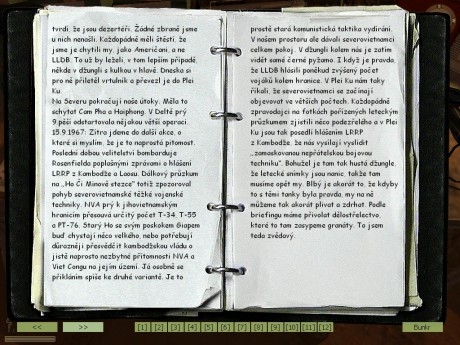 tvrdí, že jsou dezertéři. Žádné zbraně jsme
u nich nenašli. Každopádně měli štěstí, že
jsme je chytili my, jako Američani, a ne
LLDB. To už by leželi, v tom lepším případě,
někde v džungli s kulkou v hlavě. Dneska si
pro ně přiletěl vrtulník a převezl je do Plei
Ku.
Na Severu pokračují naše útoky. Měla to
schytat Cam Pha a Haiphong. V Deltě prý
9.pěší odstartovala nějakou větší operaci.
15.9.1967: Zítra jdeme do další akce, o
které si myslím, že je to naprostá pitomost.
Poslední dobou velitelství bombarduje
Rosenfielda poplašnými zprávami o hlášení
LRRP z Kambodže a Laosu. Dálkový průzkum
na „Ho Či Minově stezce" totiž zpozoroval
pohyb severovietnamské těžké vojenské
techniky. NVA prý k jihovietnamským
hranicím přesouvá určitý počet T-34, T-55
a PT-76. Starý Ho se svým poskokem Giapem
buď chystají něco velkého, nebo potřebují
důrazněji přesvědčit kambodžskou vládu o
jistě naprosto nezbytné přítomnosti NVA a
Viet Congu na jejím území. Já osobně se
přikláním spíše ke druhé variantě. Je to
prostě stará komunistická taktika vydírání.
V našem prostoru ale dávali severovietnamci
celkem pokoj. V džungli kolem nás je zatím
vidět samé černé pyžamo. I když je pravda,
že LLDB hlásili poněkud zvýšený počet
vojáků kolem hranice. V Plei Ku nám taky
říkali, že severovietnamci se začínají
objevovat ve větších počtech. Každopádně
zpravodajci na fotkách pořízených leteckým
průzkumem zjistili něco podezřelého a v Plei
Ku jsou tak posedlí hlášením LRRP
z Kambodže, že nás vysílají vyslídit
„zamaskovanou nepřátelskou bojovou
techniku". Bohužel je tam tak hustá džungle,
že letecké snímky jsou nanic, takže tam
musíme opět my. Blbý je akorát to, že kdyby
to s těmi tanky byla pravda, my na ně
můžeme tak akorát plivat a zdrhat. Podle
briefingu máme přivolat dělostřelectvo,
které to tam zasypeme granáty. To jsem
teda zvědavý.
<< >> [1] [2] [3] [4] [5] [6] [7] [8] [9] [10] [11] [12] Bunkr